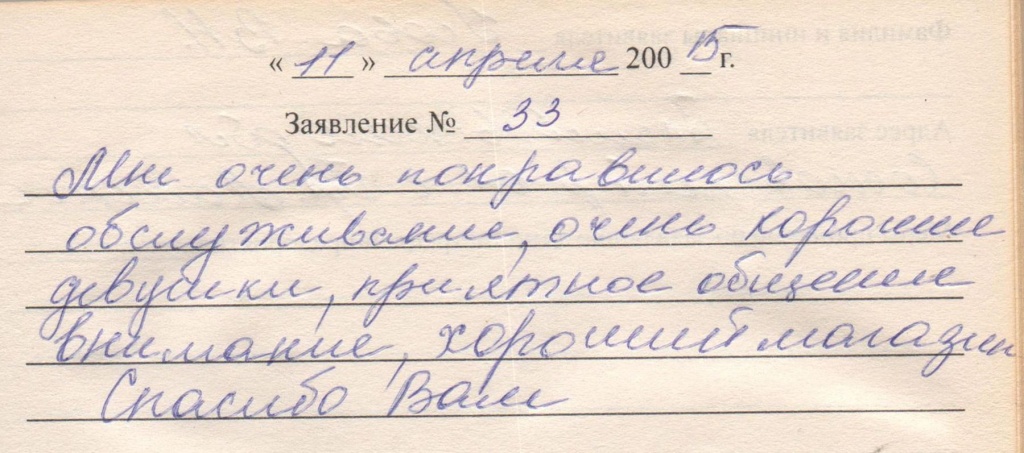 « 11 » апреля 200 15 г.
Заявление № 33
Мне очень понравилось
обслуживание, очень хорошие
девушки, приятное общение
внимание, хороший магазин
Спасибо Вам